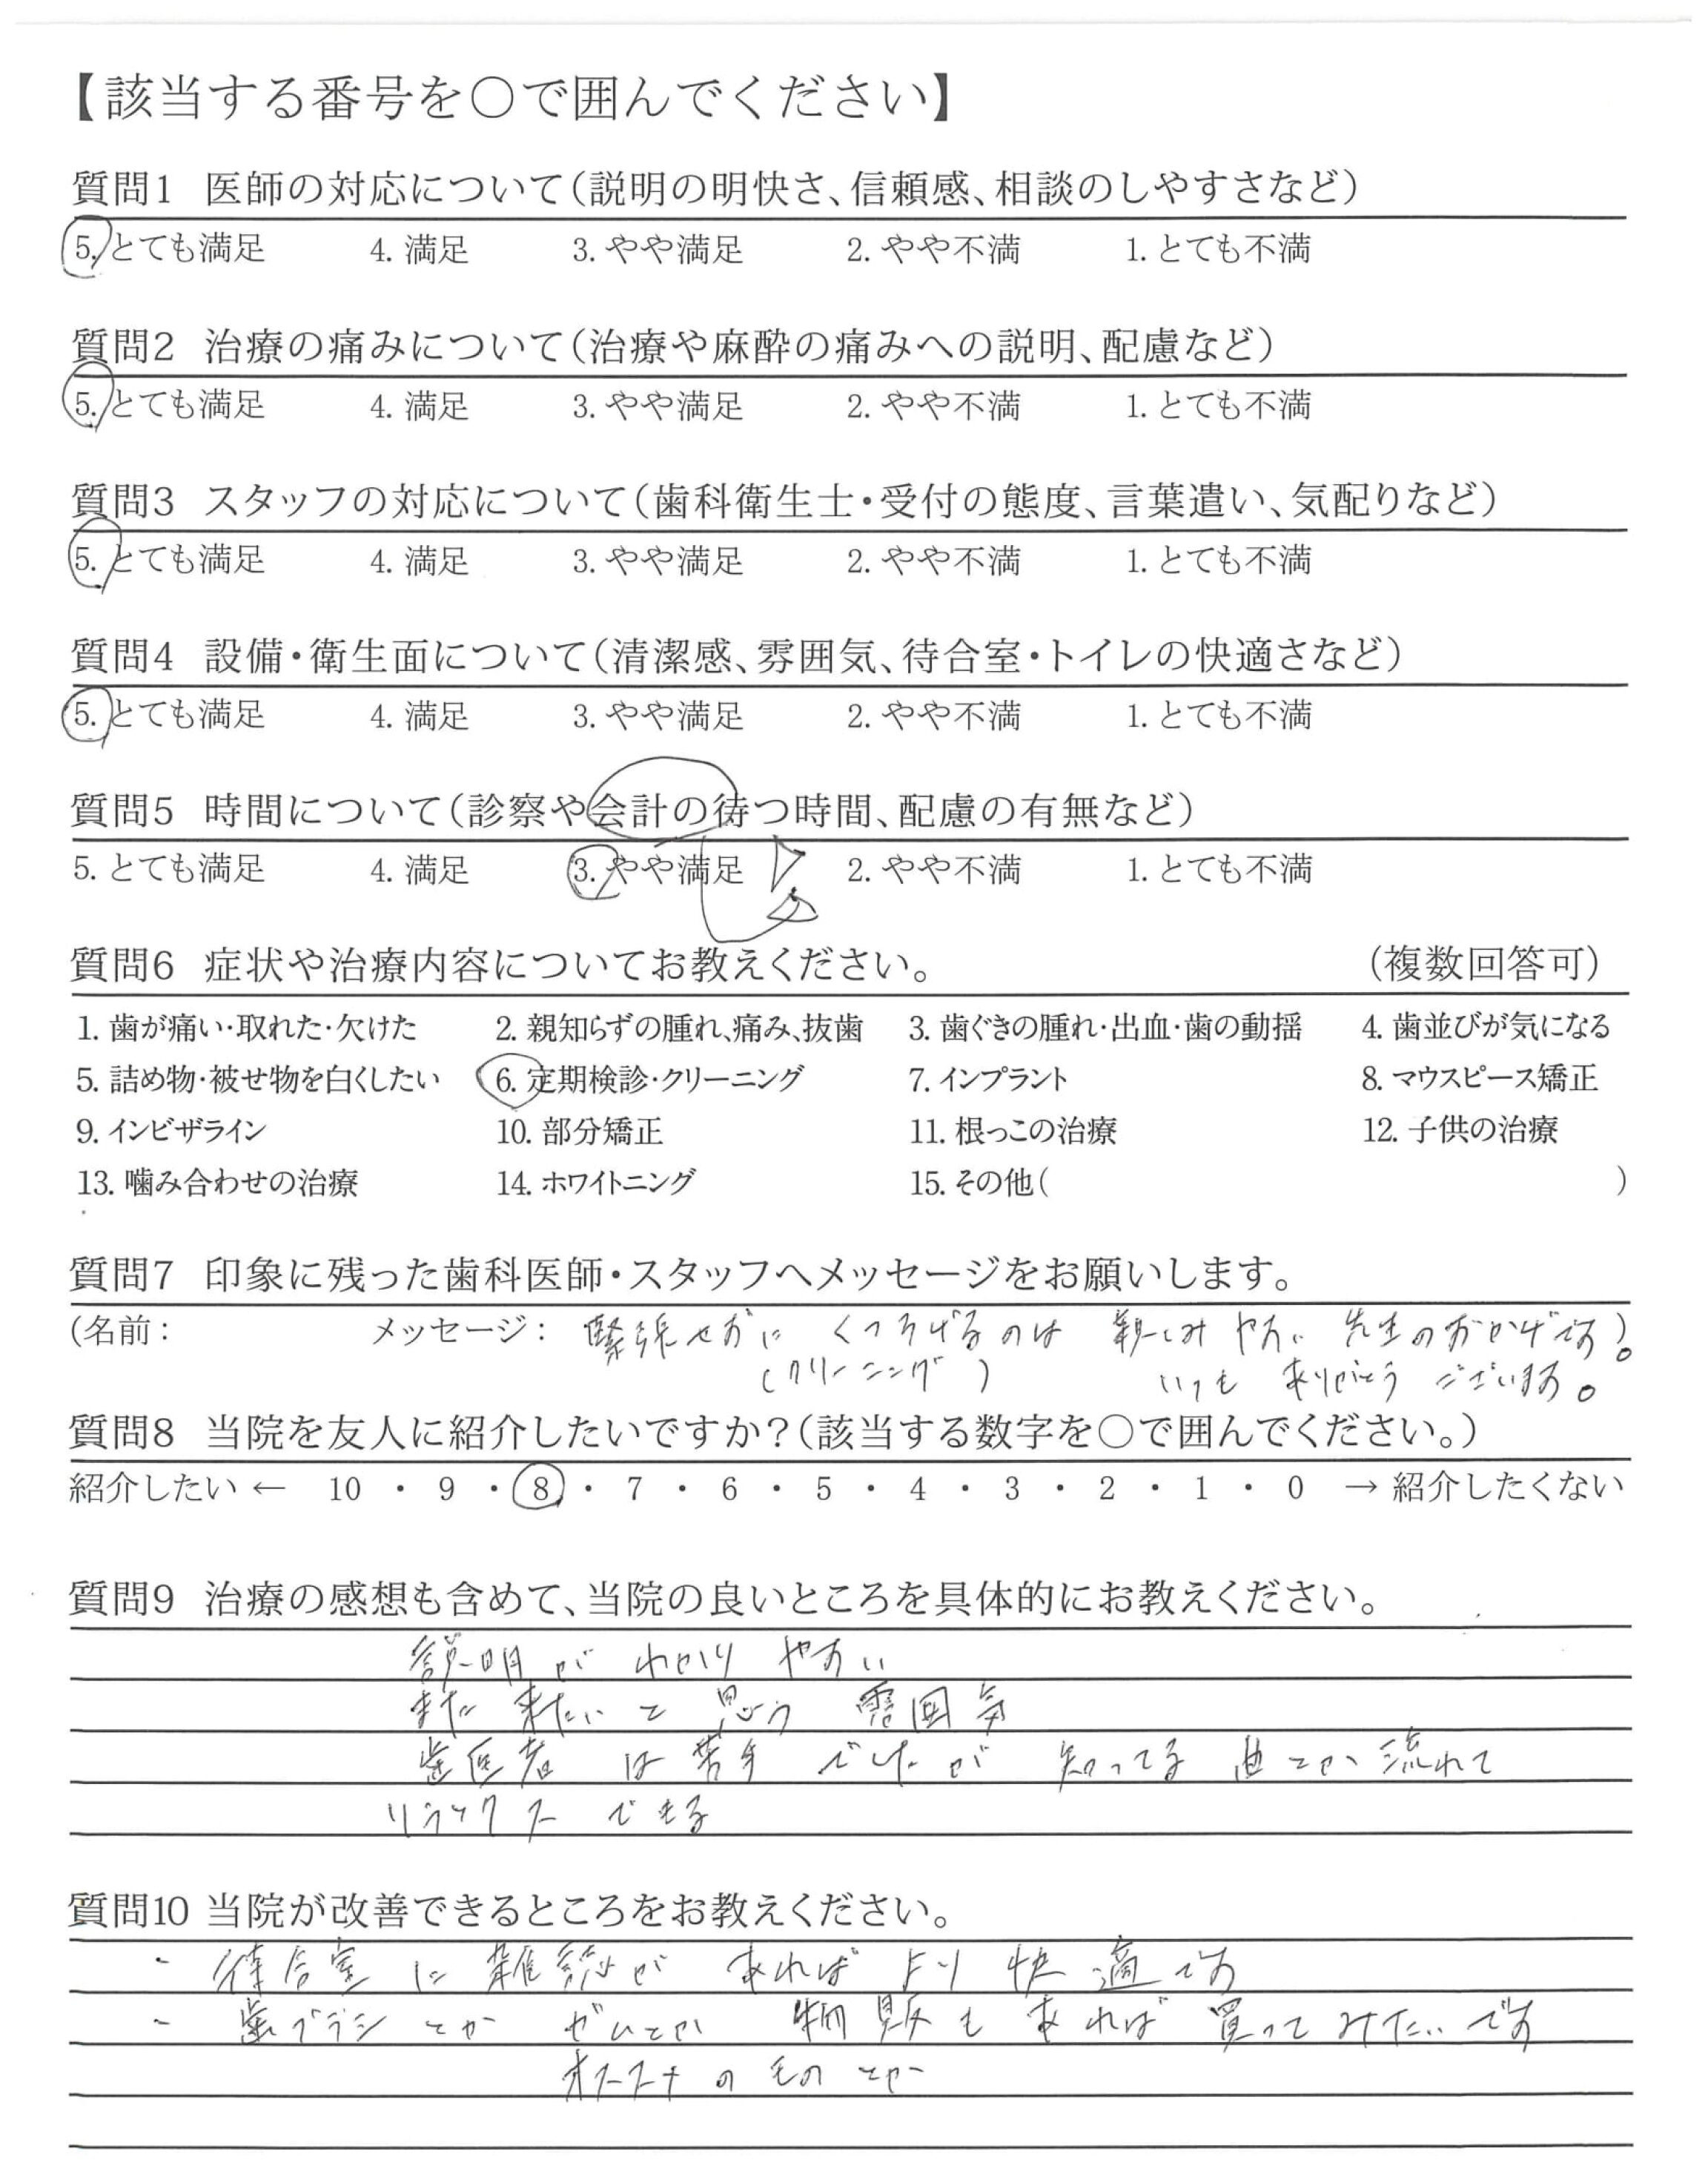 【該当する番号を○で囲んでください】
質問1 医師の対応について(説明の明快さ、信頼感、相談のしやすさなど)
5. とても満足 4. 満足 3. やや満足 2. やや不満 1. とても不満
質問2 治療の痛みについて(治療や麻酔の痛みへの説明、配慮など)
5. とても満足 4. 満足 3. やや満足 2. やや不満 1. とても不満
質問3 スタッフの対応について(歯科衛生士・受付の態度、言葉遣い、気配りなど)
5. とても満足 4. 満足 3. やや満足 2. やや不満 1. とても不満
質問4 設備・衛生面について(清潔感、雰囲気、待合室・トイレの快適さなど)
5. とても満足 4. 満足 3. やや満足 2. やや不満 1. とても不満
質問5 時間について(診察や会計の待つ時間、配慮の有無など)
5. とても満足 4. 満足 3. やや満足 2. やや不満 1. とても不満
質問6 症状や治療内容についてお教えください。 (複数回答可)
1. 歯が痛い・取れた・欠けた 2. 親知らずの腫れ、痛み、抜歯 3. 歯ぐきの腫れ・出血・歯の動揺 4. 歯並びが気になる
5. 詰め物・被せ物を白くしたい 6. 定期検診・クリーニング 7. インプラント 8. マウスピース矯正
9. インビザライン 10. 部分矯正 11. 根っこの治療 12. 子供の治療
13. 噛み合わせの治療 14. ホワイトニング 15. その他( )
質問7 印象に残った歯科医師・スタッフへメッセージをお願いします。
(名前: メッセージ: 緊張せずに くつろげるのは 親しみやすい 先生のおかげです)。
(クリーニング) いつも ありがとう ございます。
質問8 当院を友人に紹介したいですか?(該当する数字を○で囲んでください。)
紹介したい ← 10 ・ 9 ・ 8 ・ 7 ・ 6 ・ 5 ・ 4 ・ 3 ・ 2 ・ 1 ・ 0 → 紹介したくない
質問9 治療の感想も含めて、当院の良いところを具体的にお教えください。
説明が わかり やすい
また 来たい と 思う 雰囲気
歯医者 は 苦手 でしたが 知ってる 曲とか 流れて
リラックス できる
質問10 当院が改善できるところをお教えください。
- 待合室 に 雑誌が あれば より 快適です
- 歯ブラシ とか 物販も あれば 買って みたいです
オススメ の もの とか